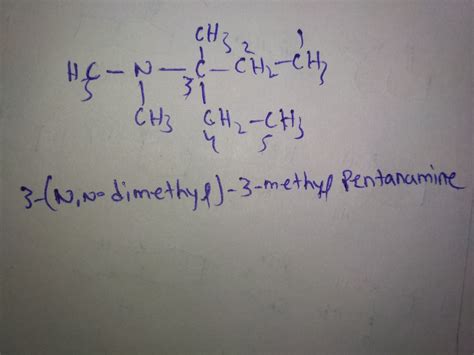 CH3 2 1
H3C - N - C - CH2 - CH3
3
CH3 CH2 - CH3
4 5
3-(N,N-dimethyl)-3-methyl Pentanamine